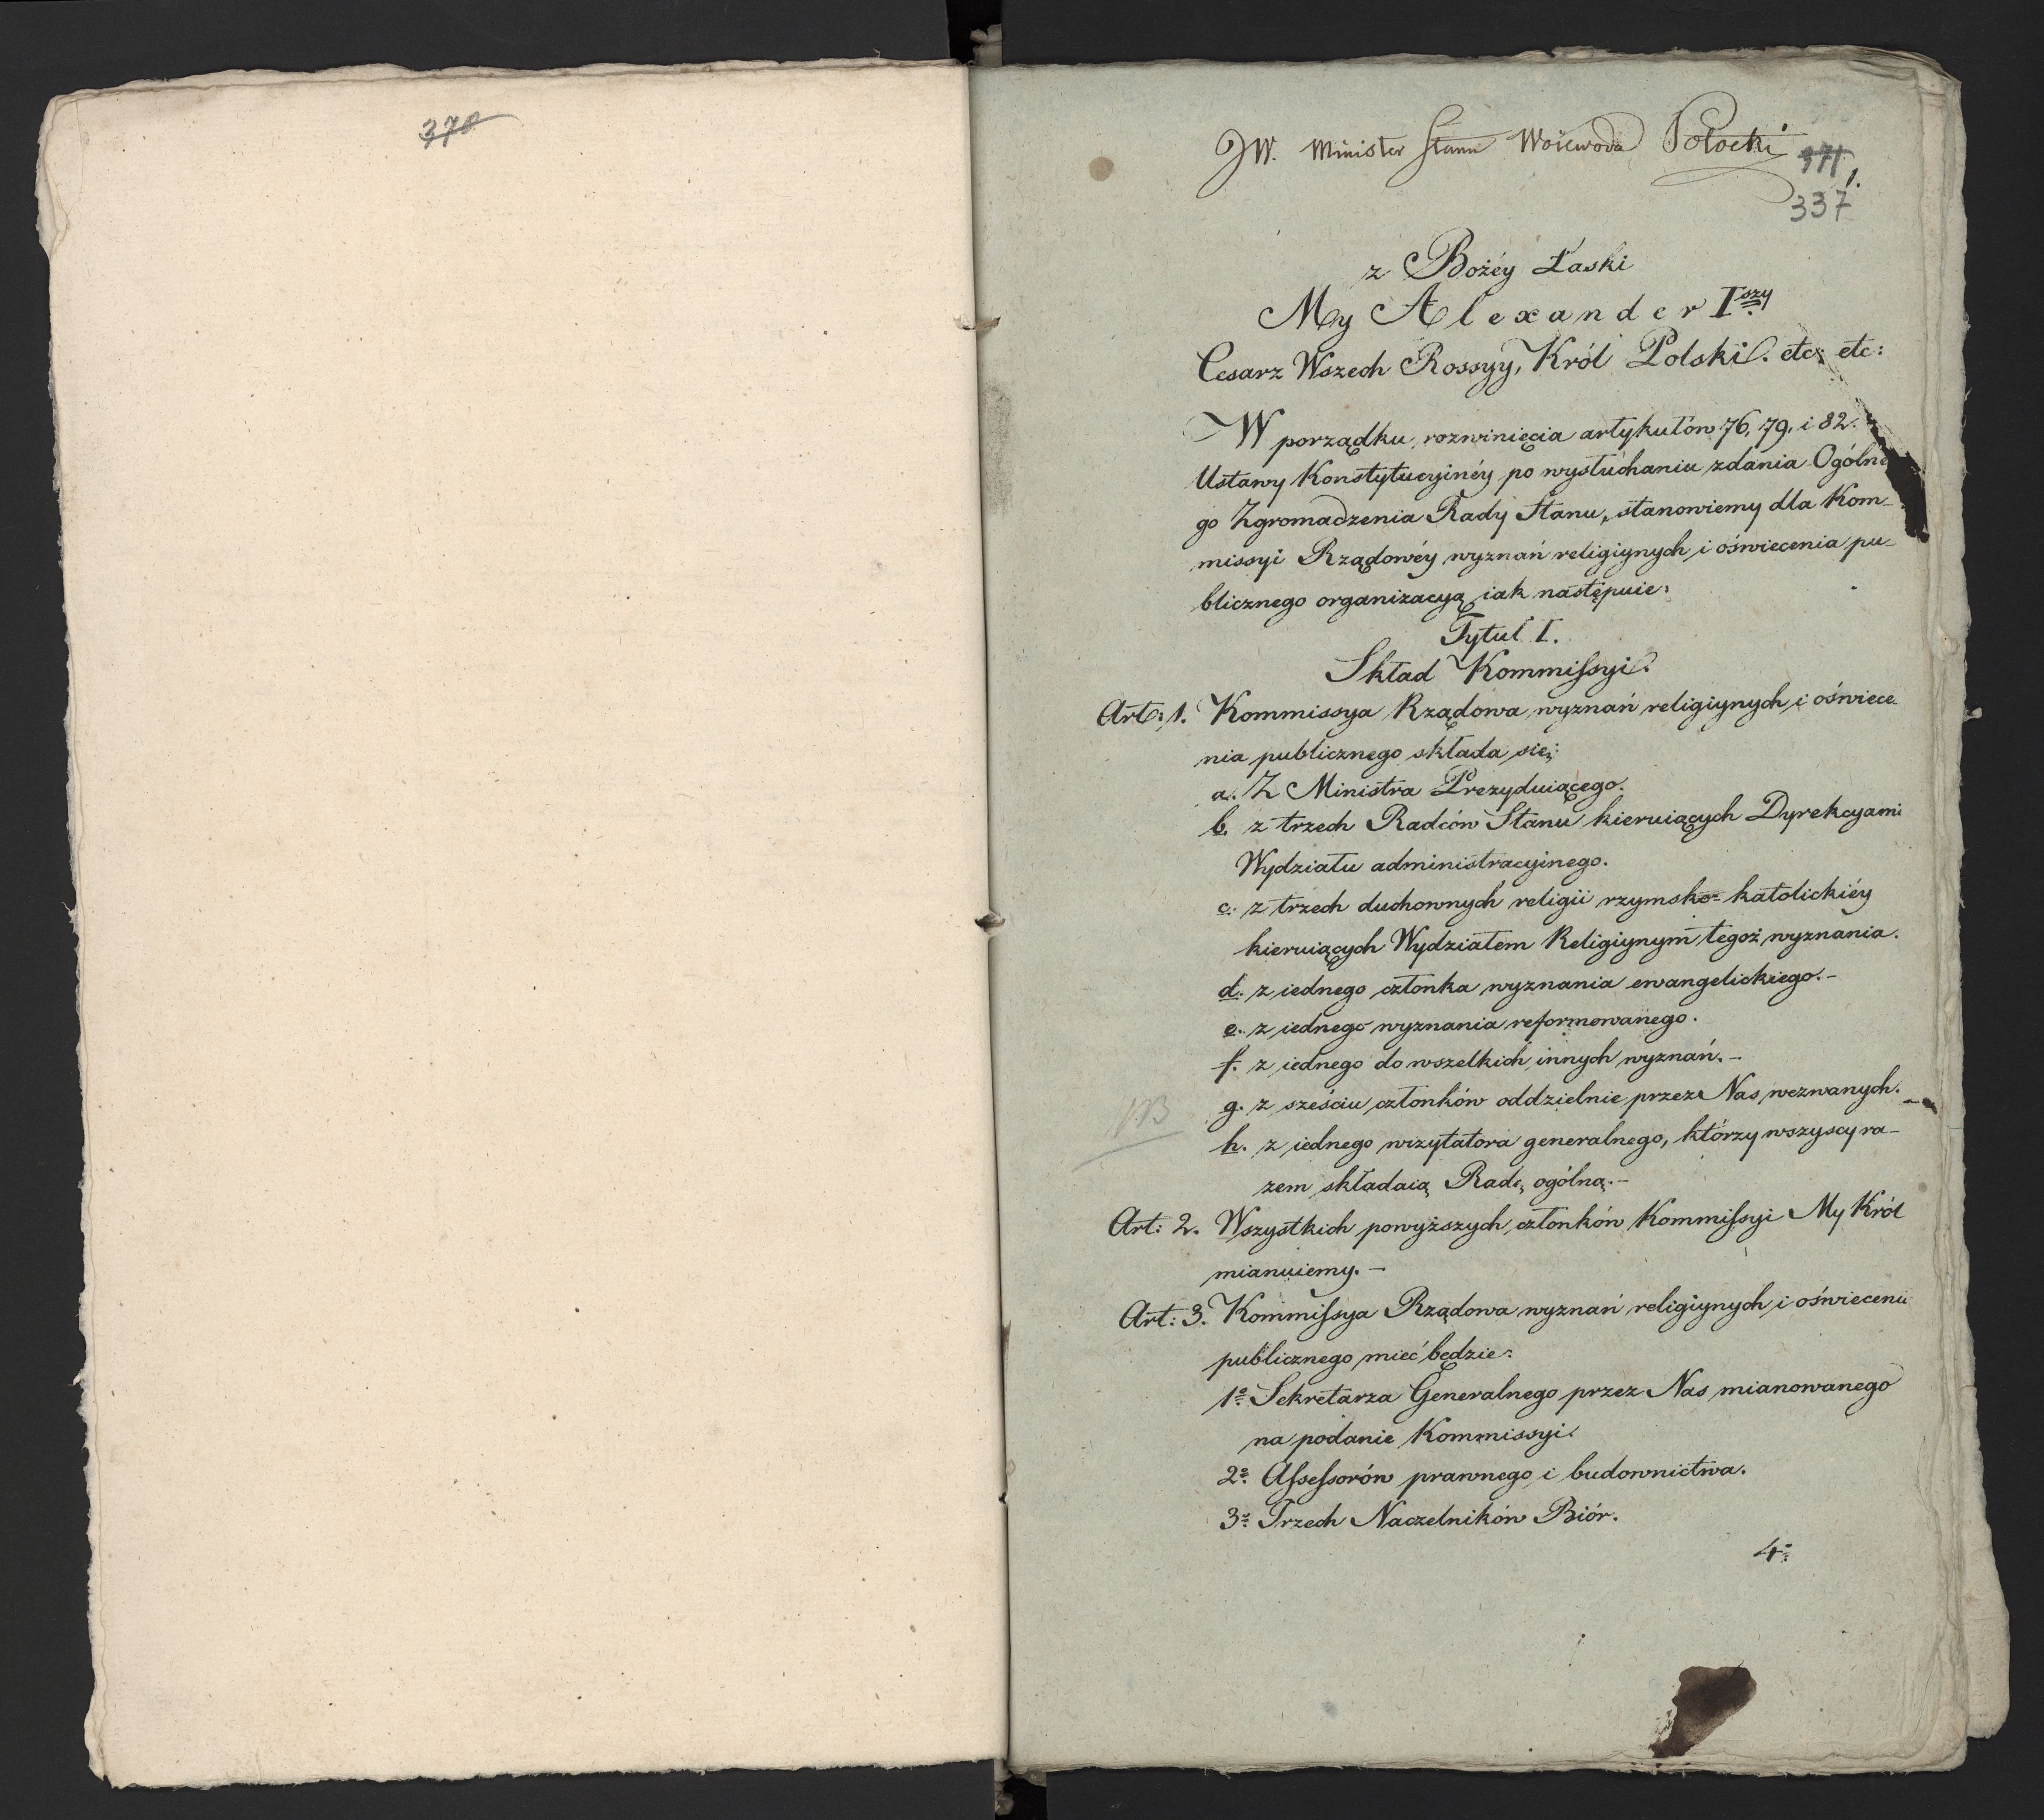 378
JW. Minister Stanu Woiewoda Potocki
371
1.
337
z Bożéy Łaski
My Alexander Iszy
Cesarz Wszech Rossyy, Król Polski. etc: etc:
W porządku rozwinięcia artykułów 76, 79, i 82.
Ustawy Konstytucyinéy po wysłuchaniu zdania Ogólne
go Zgromadzenia Rady Stanu, stanowiemy dla Kom-
missyi Rządowéy wyznań religiynych i oświecenia pu-
blicznego organizacyą iak następuie:
Tytuł I.
Skład Kommissyi.
Art: 1. Kommissya Rządowa wyznań religiynych i oświece-
nia publicznego składa się:
a. Z Ministra Prezyduiącego.
b. z trzech Radców Stanu kieruiących Dyrekcyami
Wydziału administracyinego.
c. z trzech duchownych religii rzymsko-katolickiéy
kieruiących Wydziałem Religiynym tegoż wyznania.
d. z iednego członka wyznania ewangelickiego.-
e. z iednego wyznania reformowanego.
f. z iednego do wszelkich innych wyznań.-
g. z sześciu członków oddzielnie przez Nas wezwanych.-
h. z iednego wizytatora generalnego, którzy wszyscy ra-
zem składaią Radę ogólną.-
Art: 2. Wszystkich powyższych członków Kommissyi My Król
mianuiemy.-
Art: 3. Kommissya Rządowa wyznań religiynych i oświecenia
publicznego mieć będzie:
1o Sekretarza Generalnego przez Nas mianowanego
na podanie Kommissyi.
2o Assessorów prawnego i budownictwa.
3o Trzech Naczelników Biór.
4o